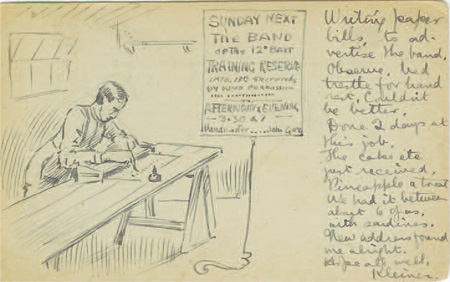 SUNDAY NEXT
THE BAND
OF THE 12th BATT
TRAINING RESERVE
BY KIND PERMISSION
AFTERNOON & EVENING
3-30 & 7
Bandmaster ..... John Gore
Writing paper
bills, to ad-
vertise the band.
Observe. bed
trestle for hand
rest. Couldn't
be better.
Done 2 days at
this job.
The cakes etc
just received.
Pineapple a treat
We had it between
about 6 of us,
with sardines.
New address found
me alright.
Hope all well.
Kleiner.